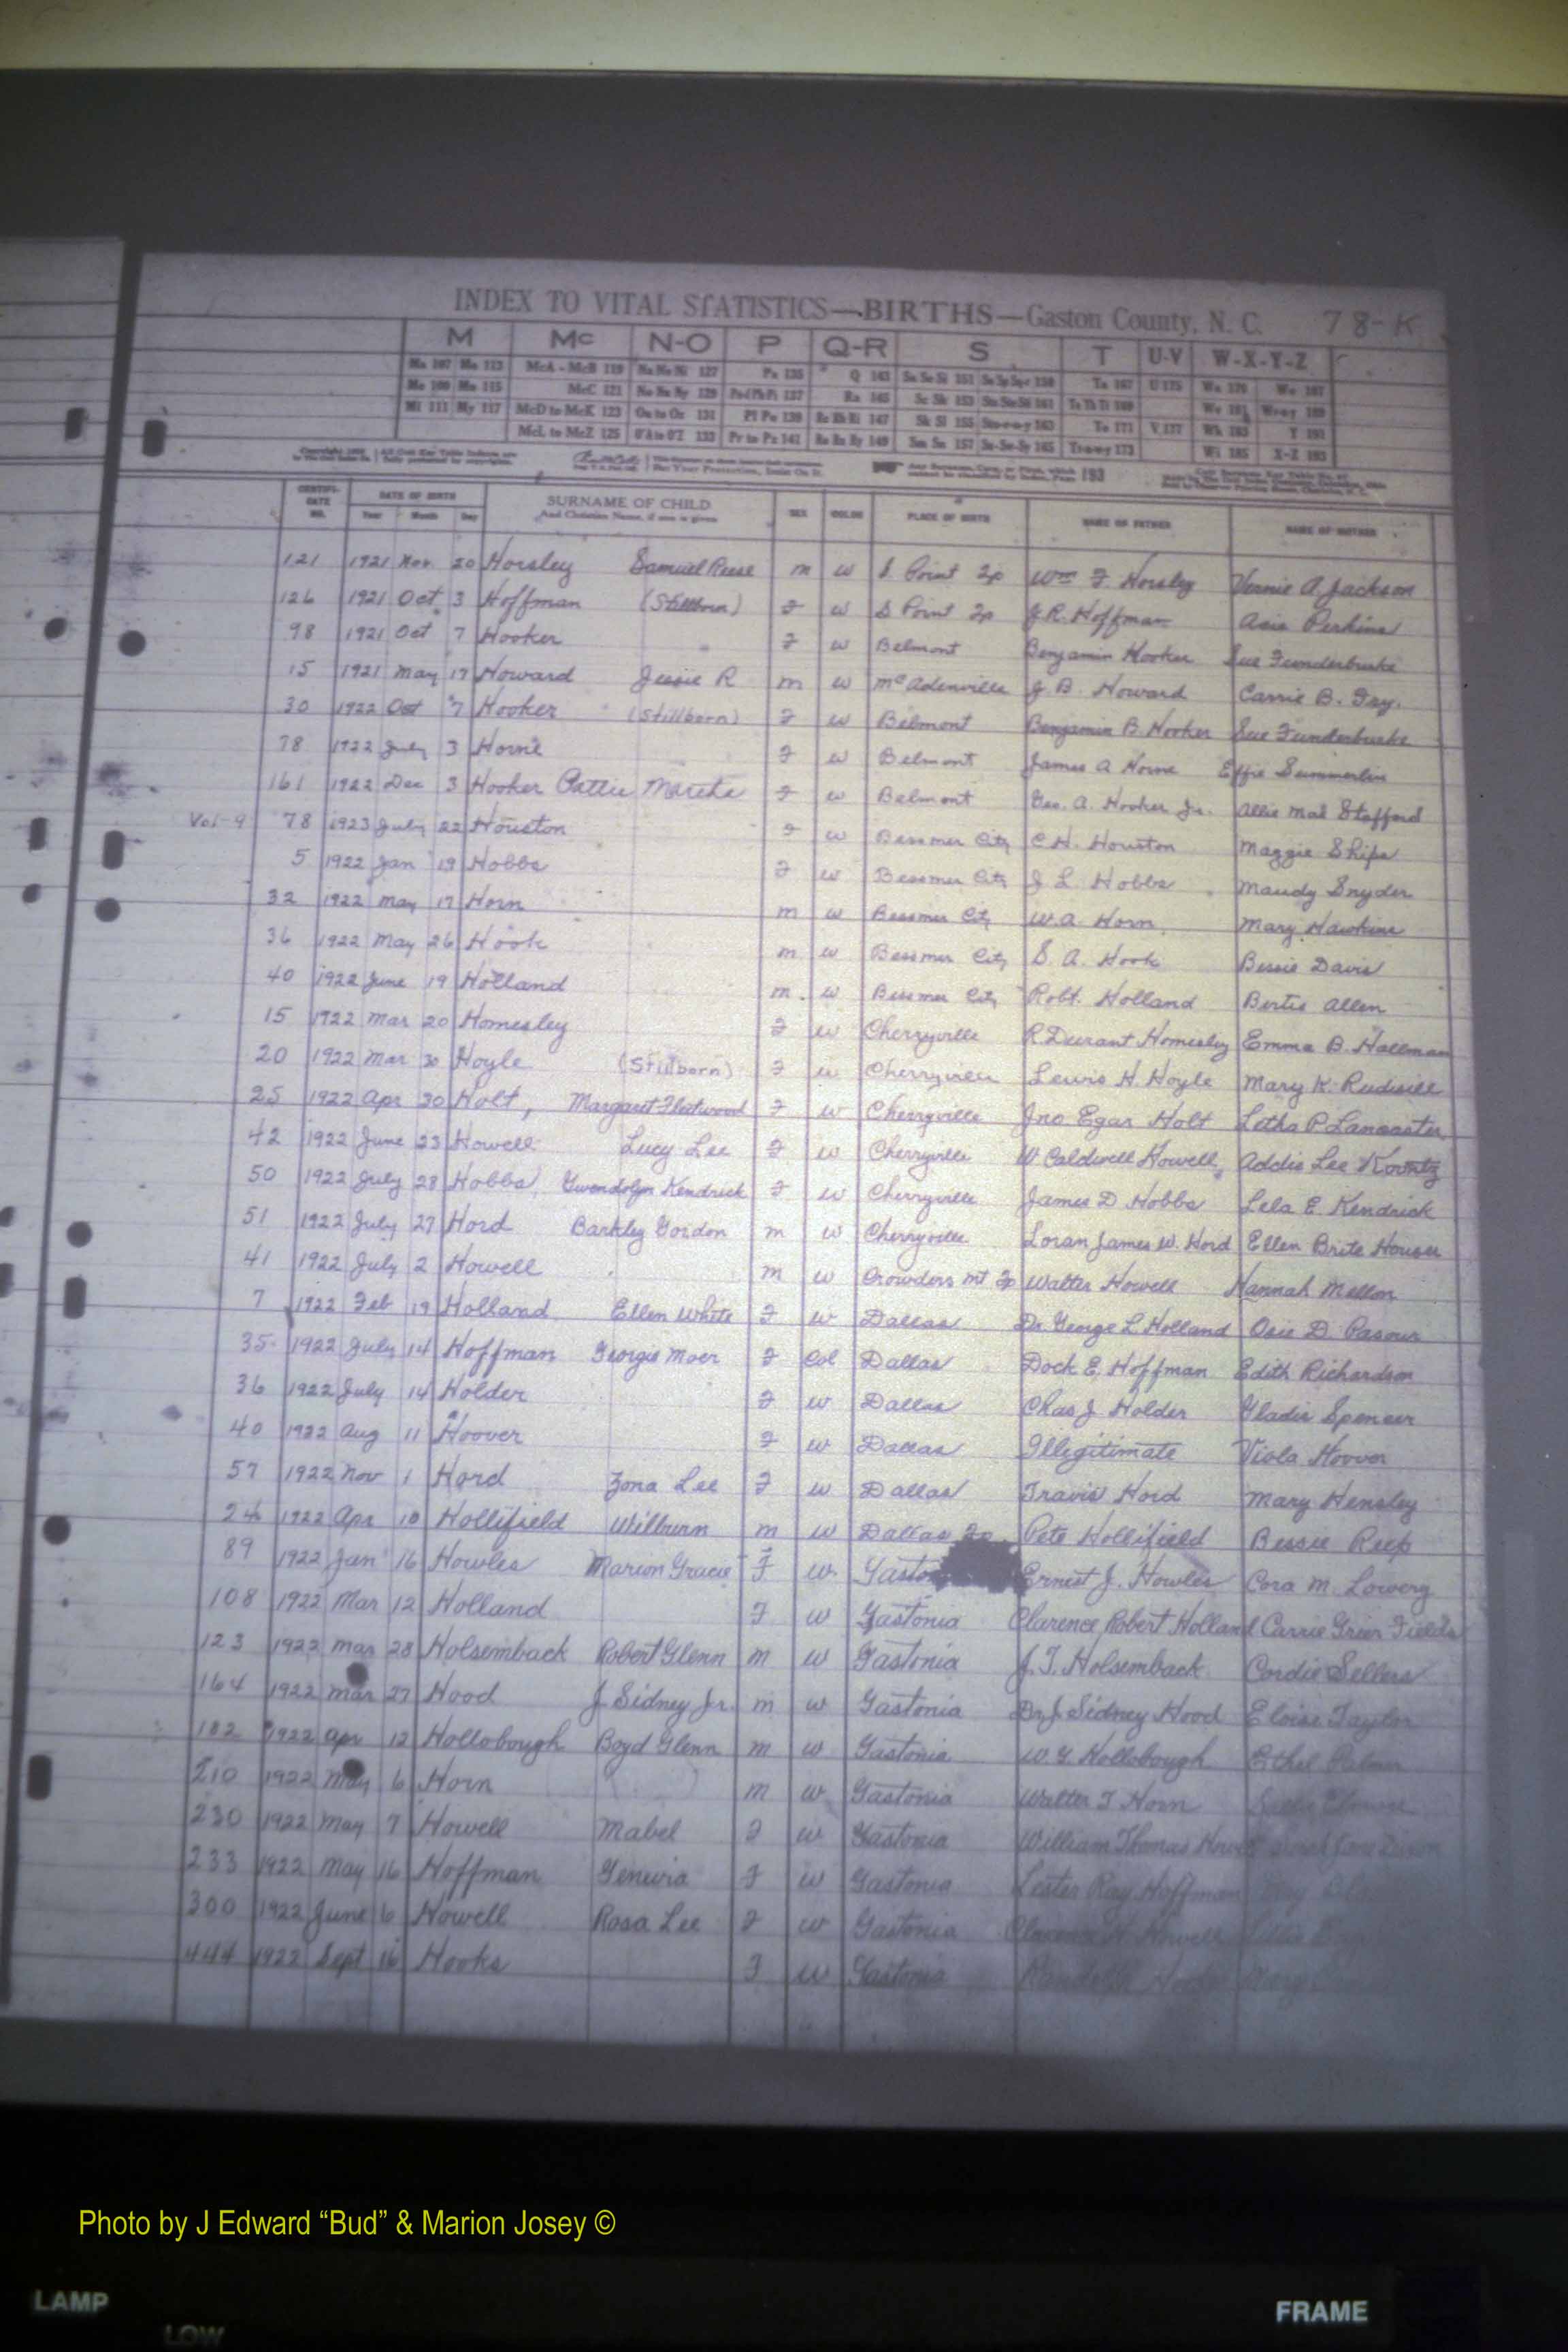 INDEX TO VITAL STATISTICS—BIRTHS—Gaston County, N. C. 78-K
M Mc N-O P Q-R S T U-V W-X-Y-Z
Ma 107 Mo 113 McA - McB 119 Na Ne Ni 127 Pa 135 Q 143 Sa Se Si 151 Ta 167 U 175
Me 109 Mu 115 McC 121 No Nu Ny 129 Ra 145 Sc Sk 153 Te Th Ti 169
Mi 111 My 117 McD to McK 123 Oa to Oz 131 Pl Po 139 Re Rh Ri 147 Sk Sl 155 To 171 V 177
McL to McZ 125 O'A to O'Z 133 Pr to Pz 141 Ro Ru Ry 149 Sm Sn 157 Tr-u-w-y 173 Wi 185 X-Z 193
CERTIFICATE NO. DATE OF BIRTH SURNAME OF CHILD SEX COLOR PLACE OF BIRTH NAME OF FATHER NAME OF MOTHER
Year Month Day And Christian Name, if one is given
121 1921 Nov. 20 Horsley Samuel Reese m w S Point Tp Wm F. Horsley Vennie A. Jackson
126 1921 Oct 3 Hoffman (Stillborn) F w S Point Tp J.R. Hoffman Asia Perkins
98 1921 Oct 7 Hooker F w Belmont Benjamin Hooker Sue Funderburke
15 1921 May 17 Howard Jessie R m w McAdenville J. B. Howard Carrie B. Fry.
30 1922 Oct 7 Hooker (Stillborn) F w Belmont Benjamin B. Hooker Sue Funderburke
78 1922 July 3 Horne F w Belmont James A Horne Effie Summerlin
161 1922 Dec 3 Hooker Pattie Marcha F w Belmont Geo. A. Hooker Jr. Allie Mal Stafford
Vol-9 78 1923 July 22 Houston F w Bessmer City C.H. Houston Maggie Ships
5 1922 Jan 19 Hobbs F w Bessmer City J L. Hobbs Maudy Snyder
32 1922 May 17 Horn m w Bessmer City W.A. Horn. Mary Hawkins
36 1922 May 26 Hook m w Bessmer City S. A. Hook Bessie Davis
40 1922 June 19 Holland m. w Bessmer City Robt. Holland Bertie Allen
15 1922 Mar 20 Homesley F w Cherryville R. Durant Homesley Emma B. Hallman
20 1922 Mar 30 Hoyle (Stillborn) F w Cherryville Lewis H. Hoyle Mary K. Rudisill
25 1922 Apr 30 Holt, Margaret Fleetwood F w Cherryville Jno Egar Holt Letha P Lancaster
42 1922 June 23 Howell Lucy Lee F w Cherryville W. Caldwell Howell Addie Lee Koontz
50 1922 July 28 Hobbs, Gwendolyn Kendrick F w Cherryville James D Hobbs Lela E. Kendrick
51 1922 July 27 Hord Barkley Gordon m w Cherryville Loran James W. Hord Ellen Brite Houser
41 1922 July 2 Howell m w Crowders Mt Tp Walter Howell Hannah Mellon
7 1922 Feb 19 Holland Ellen White F w Dallas Dr. George L Holland Osie D. Pasour
35 1922 July 14 Hoffman Georgie Moer F Col Dallas Dock E. Hoffman Edith Richardson
36 1922 July 14 Holder F w Dallas Chas J. Holder Gladis Spencer
40 1922 Aug 11 Hoover F w Dallas Illegitimate Viola Hoover
57 1922 Nov 1 Hord Zona Lee F w Dallas Travis Hord Mary Hensley
24 1922 Apr 10 Hollifield Wilburn m w Dallas Tp Pete Hollifield Bessie Reep
89 1922 Jan 16 Howles Marion Gracie F w. Ernest J. Howles Cora M. Lowery
108 1922 Mar 12 Holland F w Gastonia Clarence Robert Holland Carrie Greer Fields
123 1922 Mar 28 Holsemback Robert Glenn m w Gastonia J. T. Holsemback Cordie Sellers
164 1922 Mar 27 Hood J. Sidney Jr. m w Gastonia Dr. J. Sidney Hood Eloise Taylor
182 1922 Apr 12 Hollobough Boyd Glenn m w Gastonia W. Y. Hollobough Ethel Palmer
210 1922 May 6 Horn m w Gastonia Walter T Horn
230 1922 May 7 Howell Mabel F w Gastonia William Thomas Howell
233 1922 May 16 Hoffman Genevia F w Gastonia Lester Ray Hoffman
300 1922 June 6 Howell Rosa Lee F w Gastonia Howell
444 1922 Sept 16 Hooks F w Gastonia
Photo by J Edward “Bud” & Marion Josey ©
LAMP FRAME
LOW